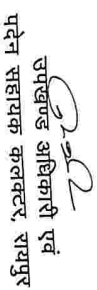 उपखण्ड अधिकारी एवं
पदेन सहायक कलक्टर, रायपुर